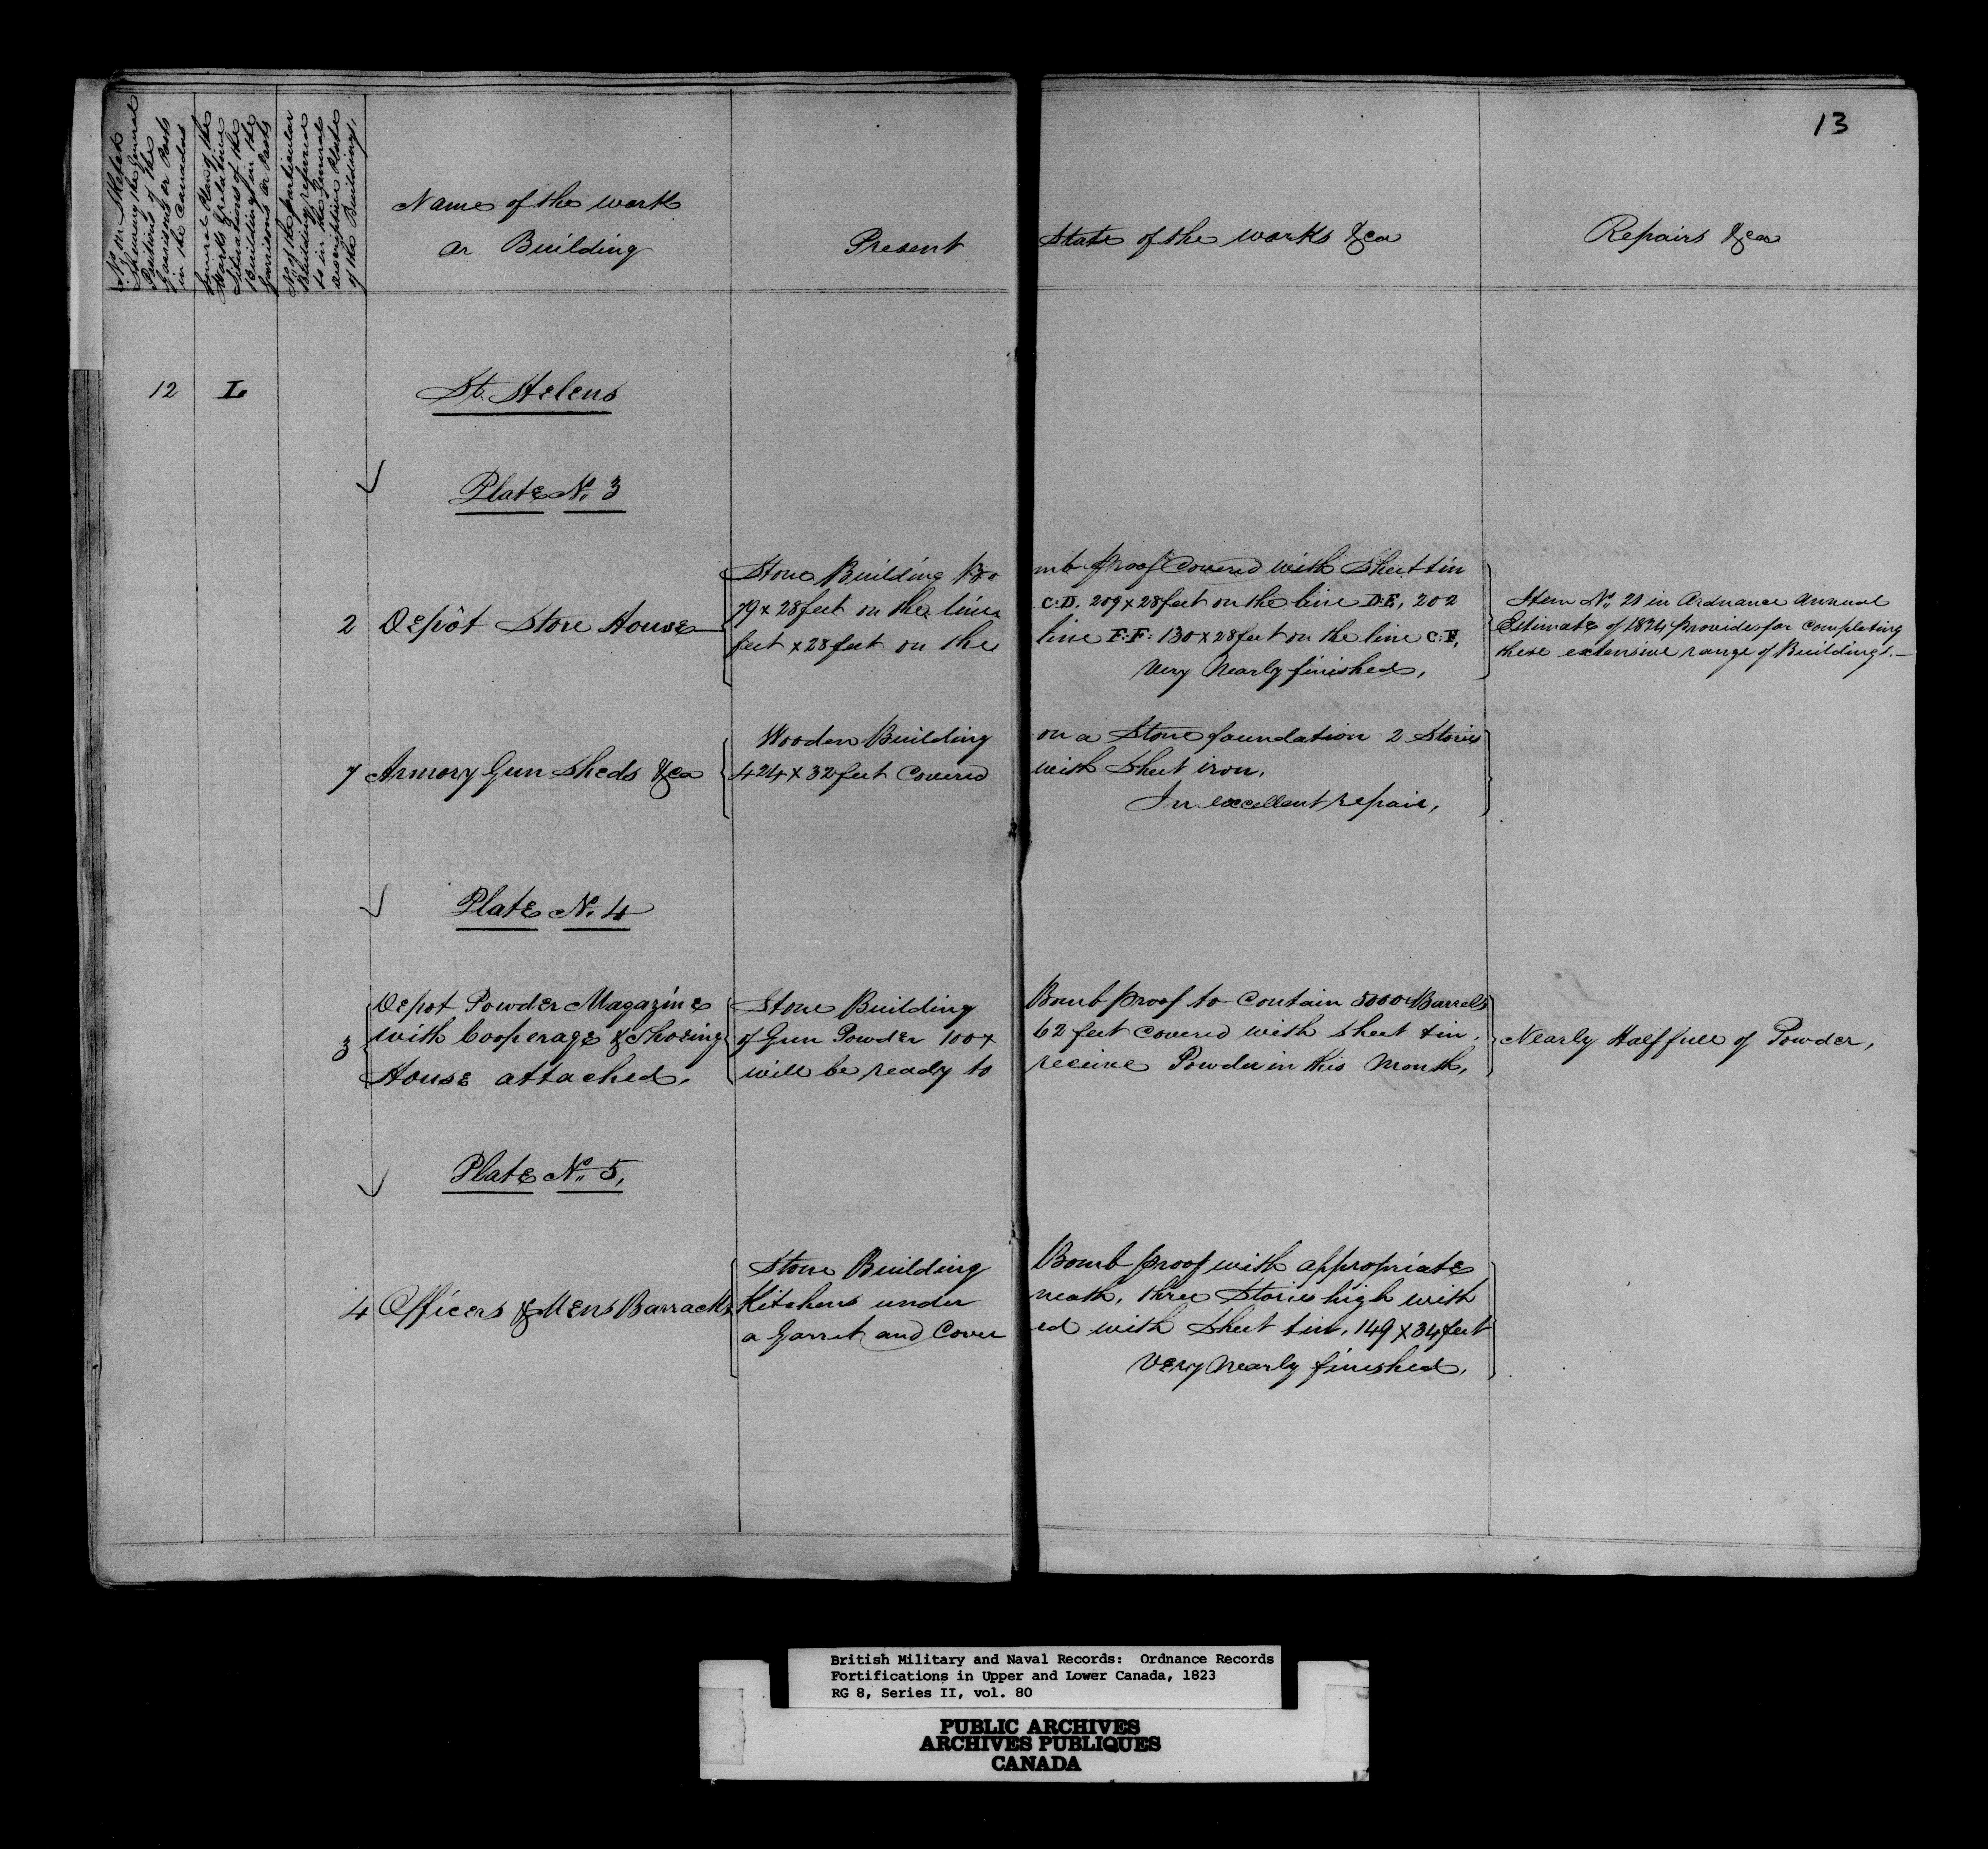 13
No. on Sketch
Shewing the General
Positions of the
Garrisons or Posts
in the Canadas
General Plan of the
Works & relative
Situations of the
Buildings in the
Garrisons or Posts
No. of the particular
Building referred
to in the General
descriptive Plate
of the Building.
Name of the work
or Building
Present
State of the works &ca
Repairs &ca
12 L St. Helens
Plate No. 3
Stone Building Bo
mb proof Covered with Sheet tin
79 x 28 feet on the line
C:D. 209 x 28 feet on the line D:E, 202
2 Depôt Store House
feet x 28 feet on the
line E:F: 130 x 28 feet on the line C:F,
Very Nearly finished,
Item No. 21 in Ordnance Annual
Estimate of 1824 provides for completing
these extensive range of Buildings.—
Wooden Building
on a Stone foundation 2 Stories
7 Armory Gun Sheds &ca
424 x 32 feet Covered
with Sheet iron.
In excellent repair,
Plate No. 4
Depot Powder Magazine
with Cooperage & Shoeing
3
House attached,
Stone Building
Bomb proof to Contain 5000 Barrels
of Gun Powder 100 x
62 feet covered with sheet tin,
will be ready to
receive Powder in this Month,
Nearly Half full of Powder,
Plate No. 5,
Stone Building
Bomb proof with appropriate
4 Officers & Mens Barracks
Kitchens under
neath, three Stories high with
a Garret and Cover
ed with Sheet tin, 149 x 34 feet
Very Nearly finished,
British Military and Naval Records: Ordnance Records
Fortifications in Upper and Lower Canada, 1823
RG 8, Series II, vol. 80
PUBLIC ARCHIVES
ARCHIVES PUBLIQUES
CANADA